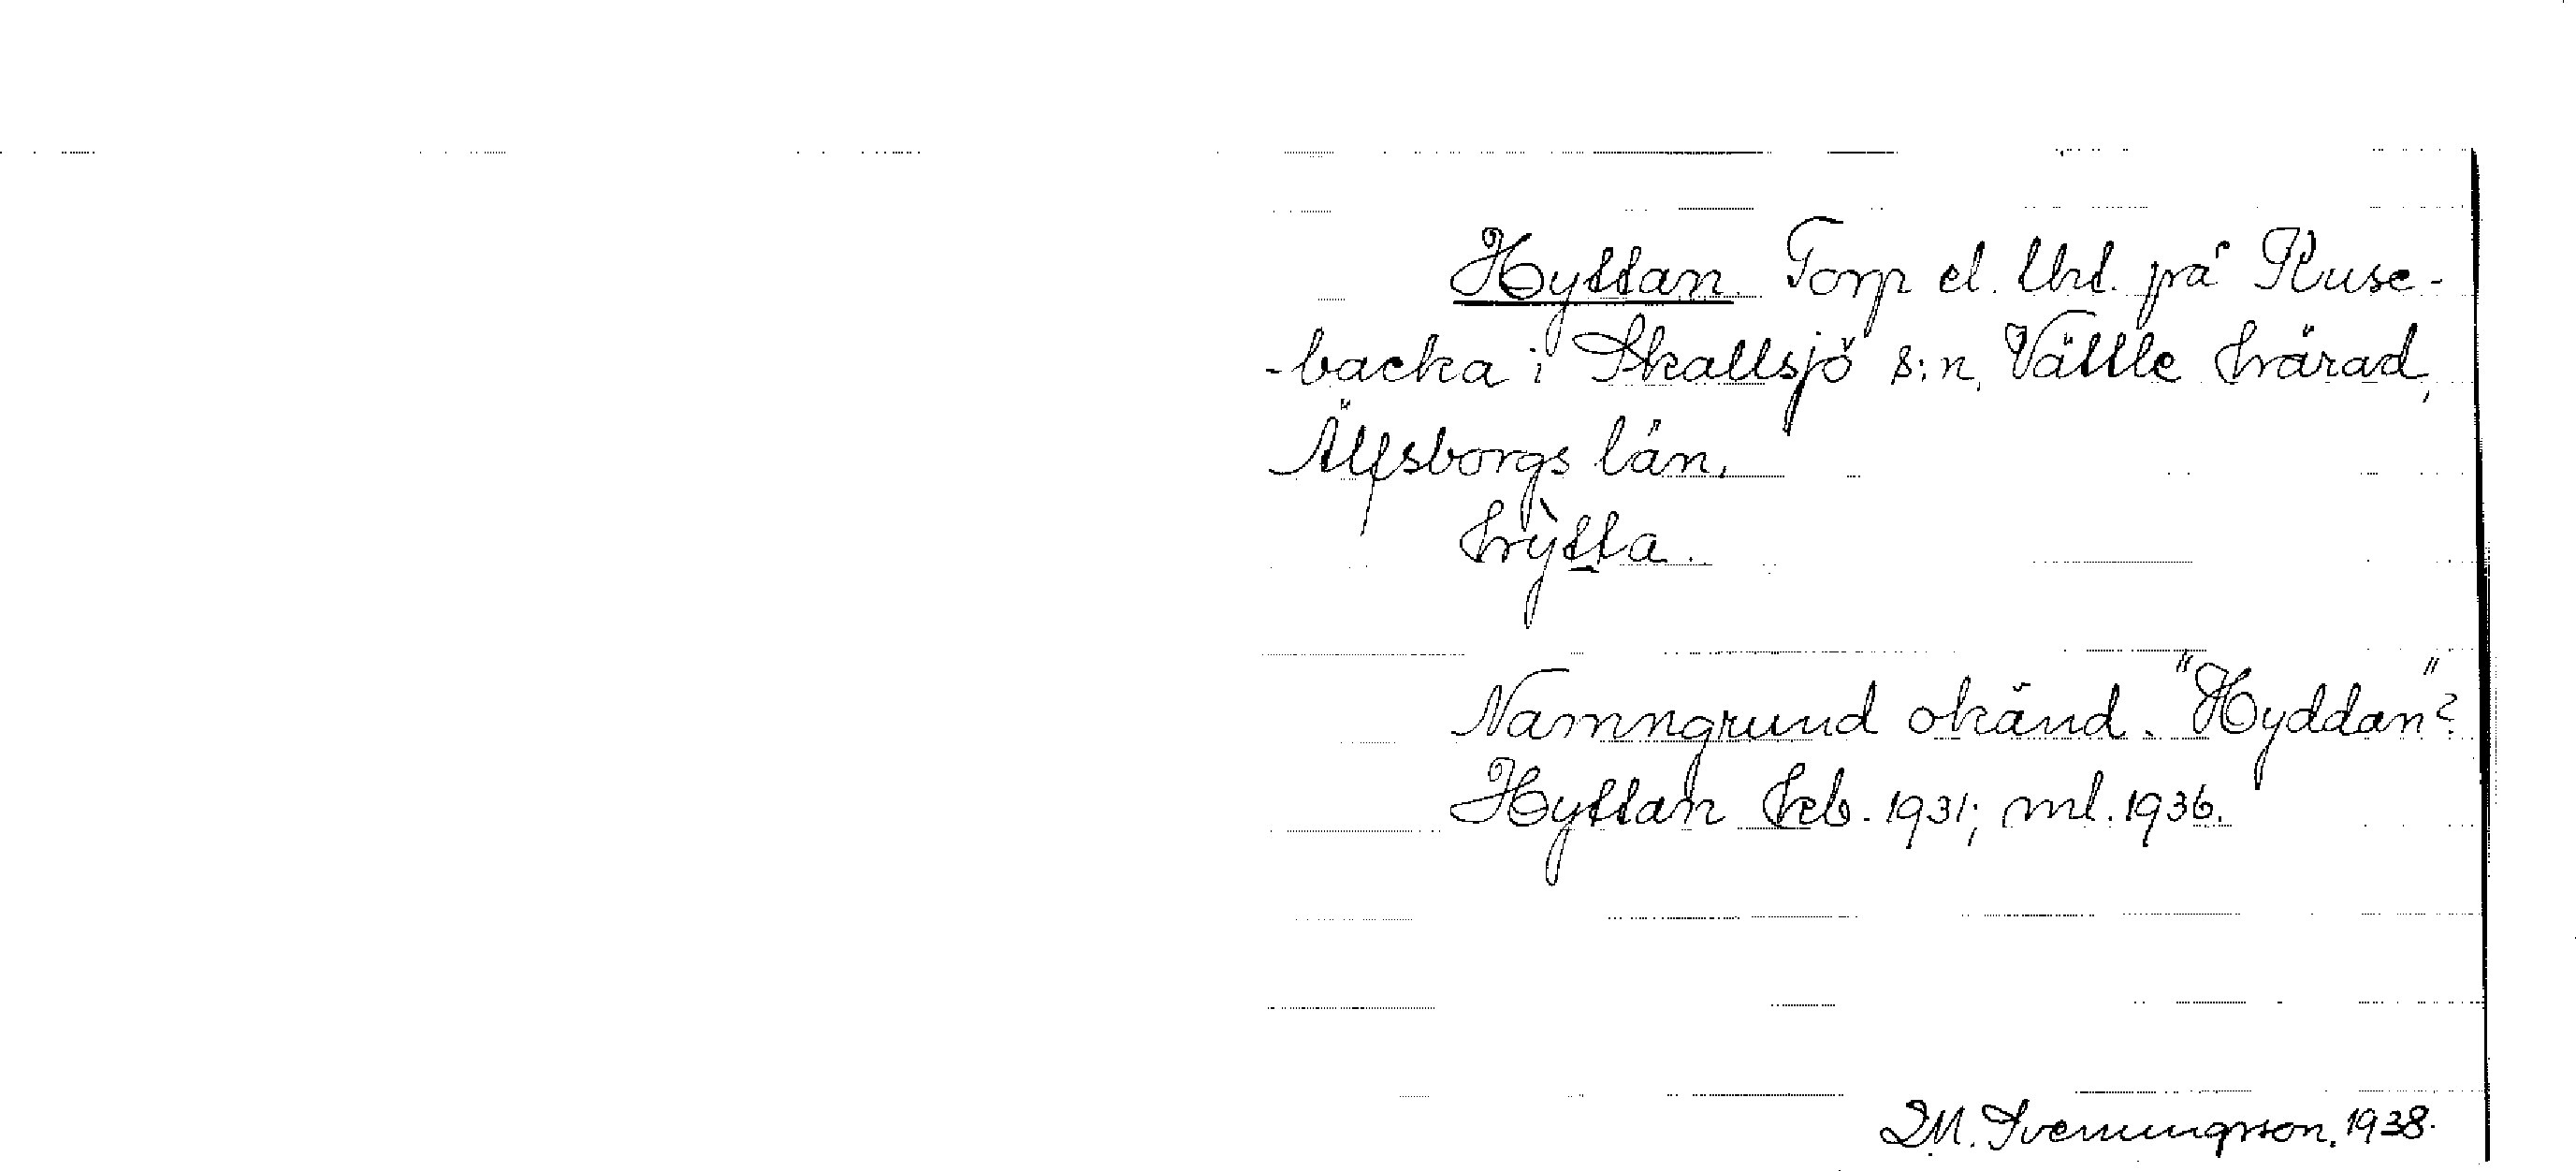 Hyttan. Torp el. lht. på Ruse-
-backa i Skallsjö s:n, Vättle härad,
Älfsborgs län.
hỳtta.
Namngrund okänd. "Hyddan"?
Hyttan kb. 1931; ml. 1936.
D.M. Svenningsson. 1938.